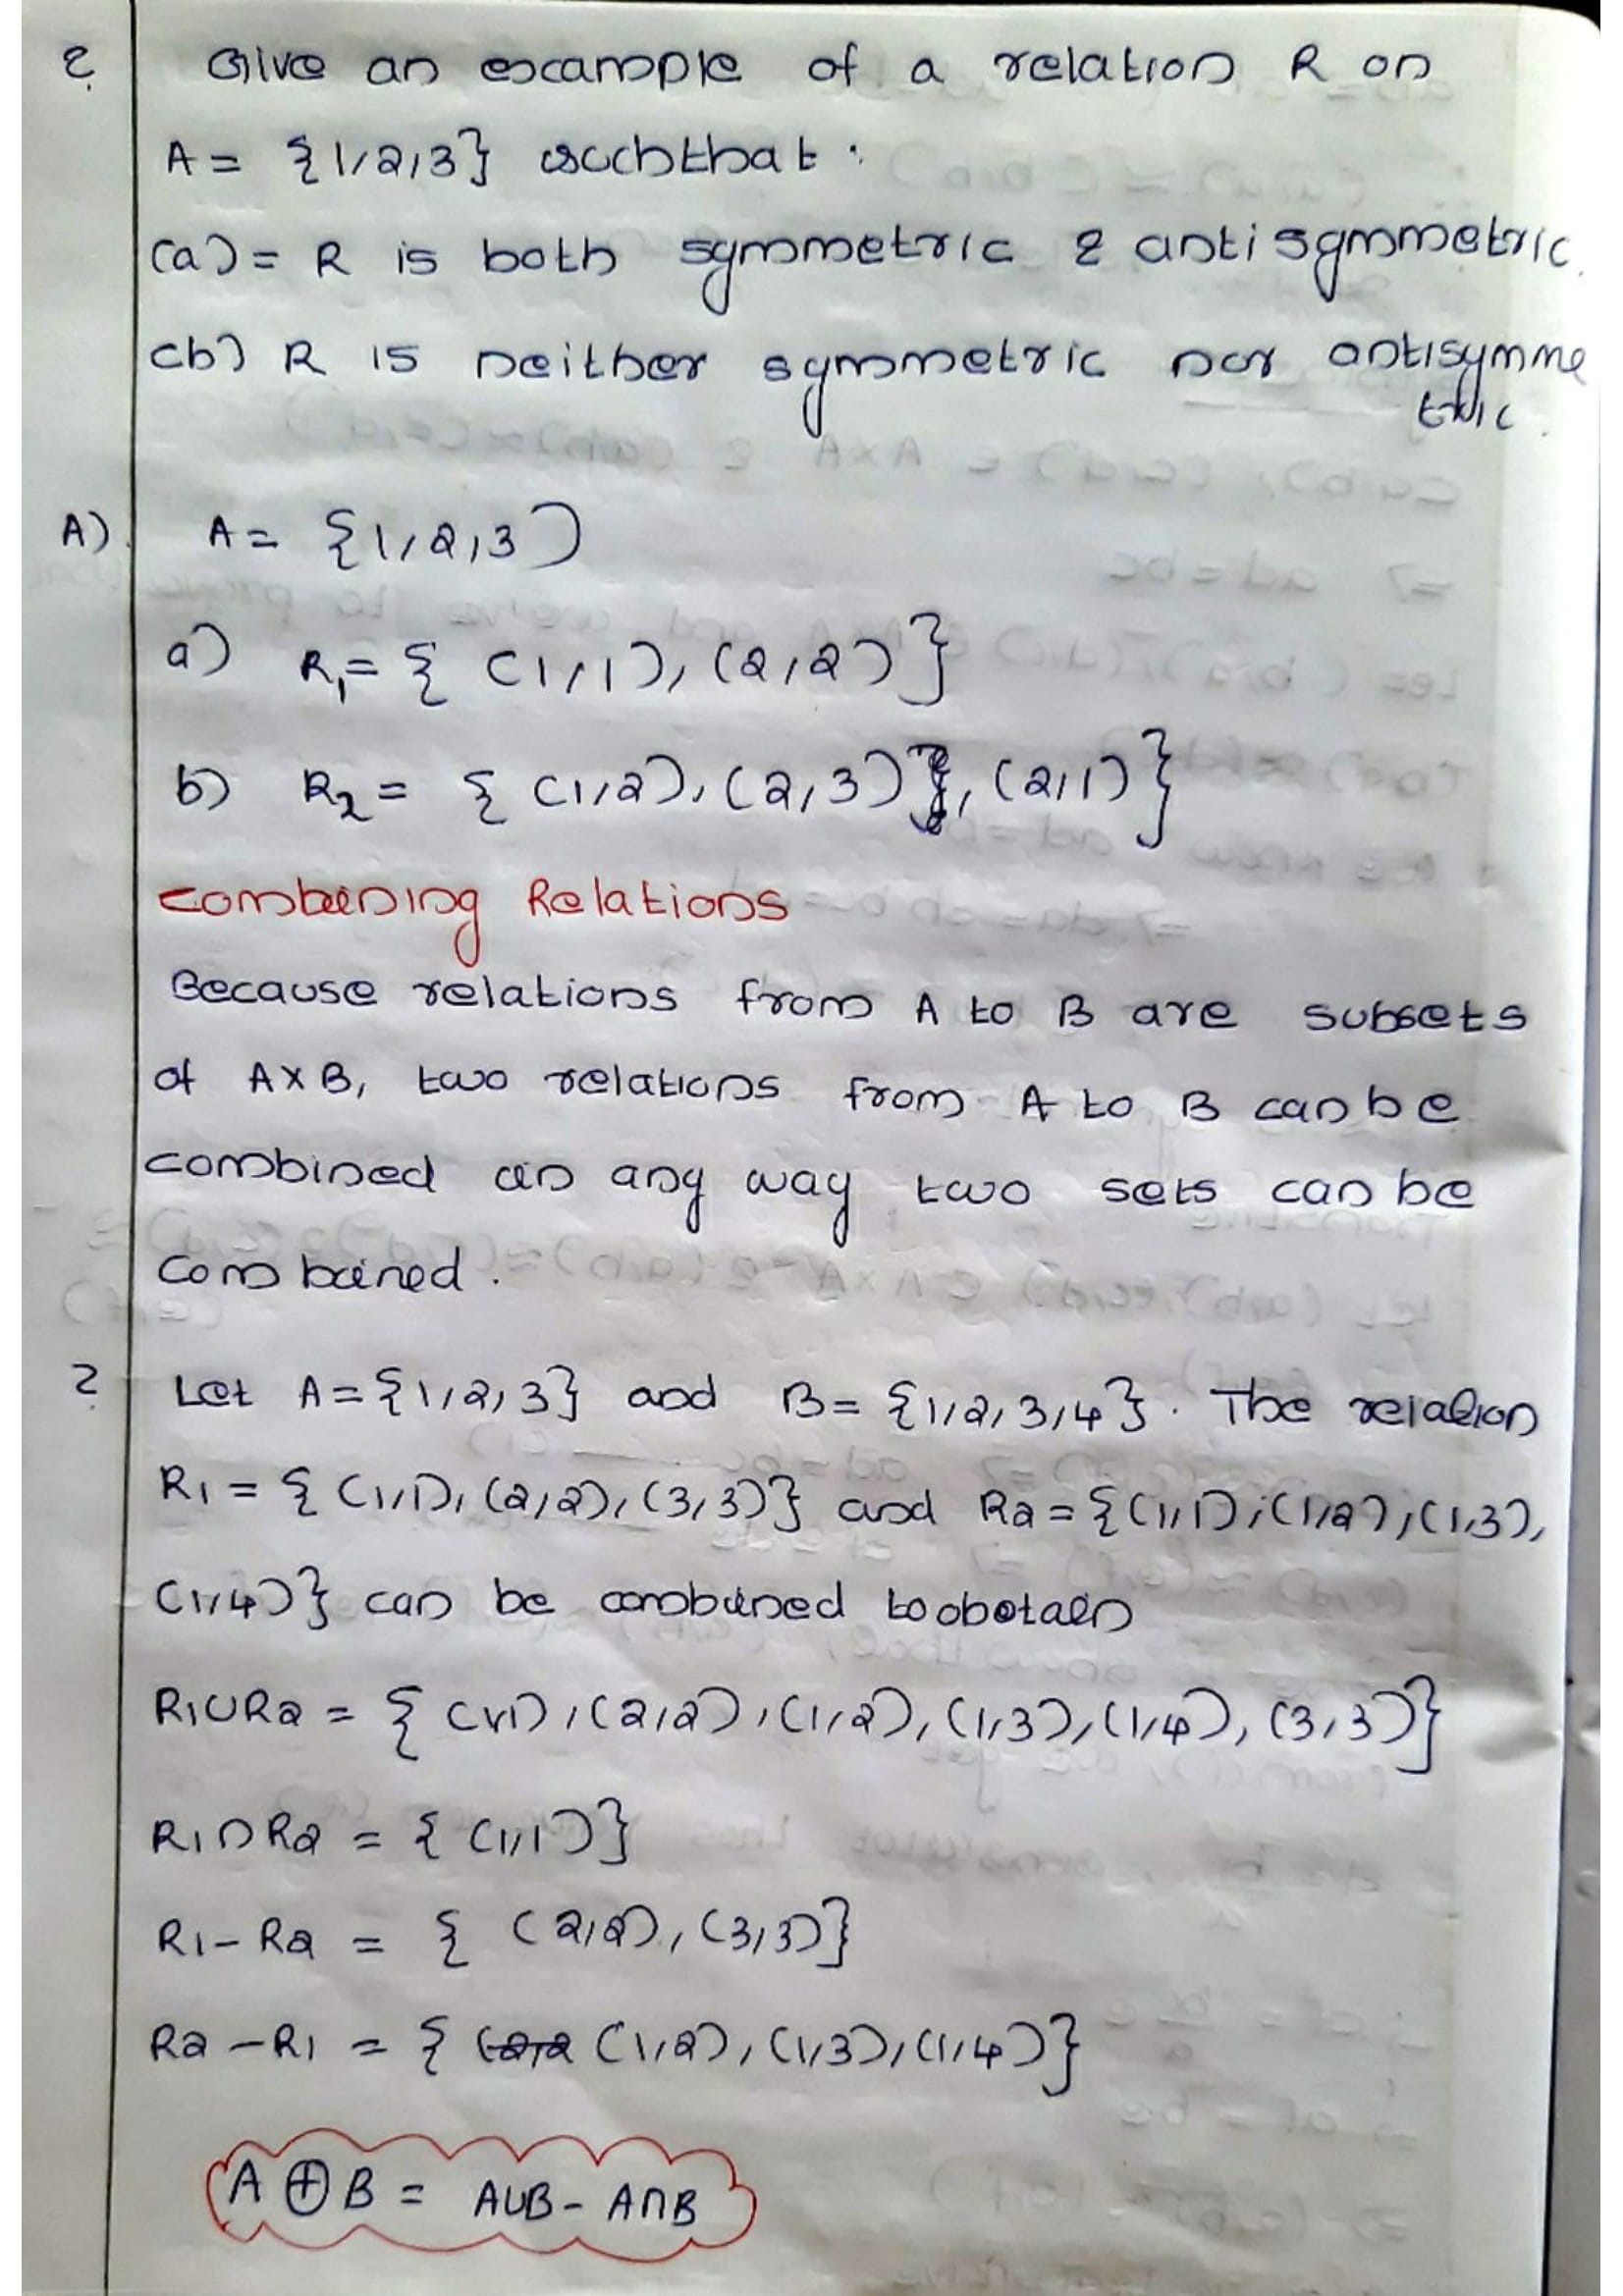 ? Give an example of a relation R on
A = {1,2,3} such that :
(a) = R is both symmetric & antisymmetric.
(b) R is neither symmetric nor antisymme
tric.
A) A = {1,2,3)
a) R₁ = { (1,1), (2,2) }
b) R₂ = { (1,2), (2,3), (2,1) }
Combining Relations
Because relations from A to B are subsets
of A×B, two relations from A to B can be
combined in any way two sets can be
combined.
? Let A = {1,2,3} and B = {1,2,3,4}. The relation
R1 = { (1,1), (2,2), (3,3)} and R2 = {(1,1), (1,2), (1,3),
(1,4)} can be combined to obotain
R1∪R2 = { (1,1), (2,2), (1,2), (1,3), (1,4), (3,3)}
R1∩R2 = { (1,1)}
R1 - R2 = { (2,2), (3,3)}
R2 - R1 = { (1,2), (1,3), (1,4)}
A ⊕ B = A∪B - A∩B